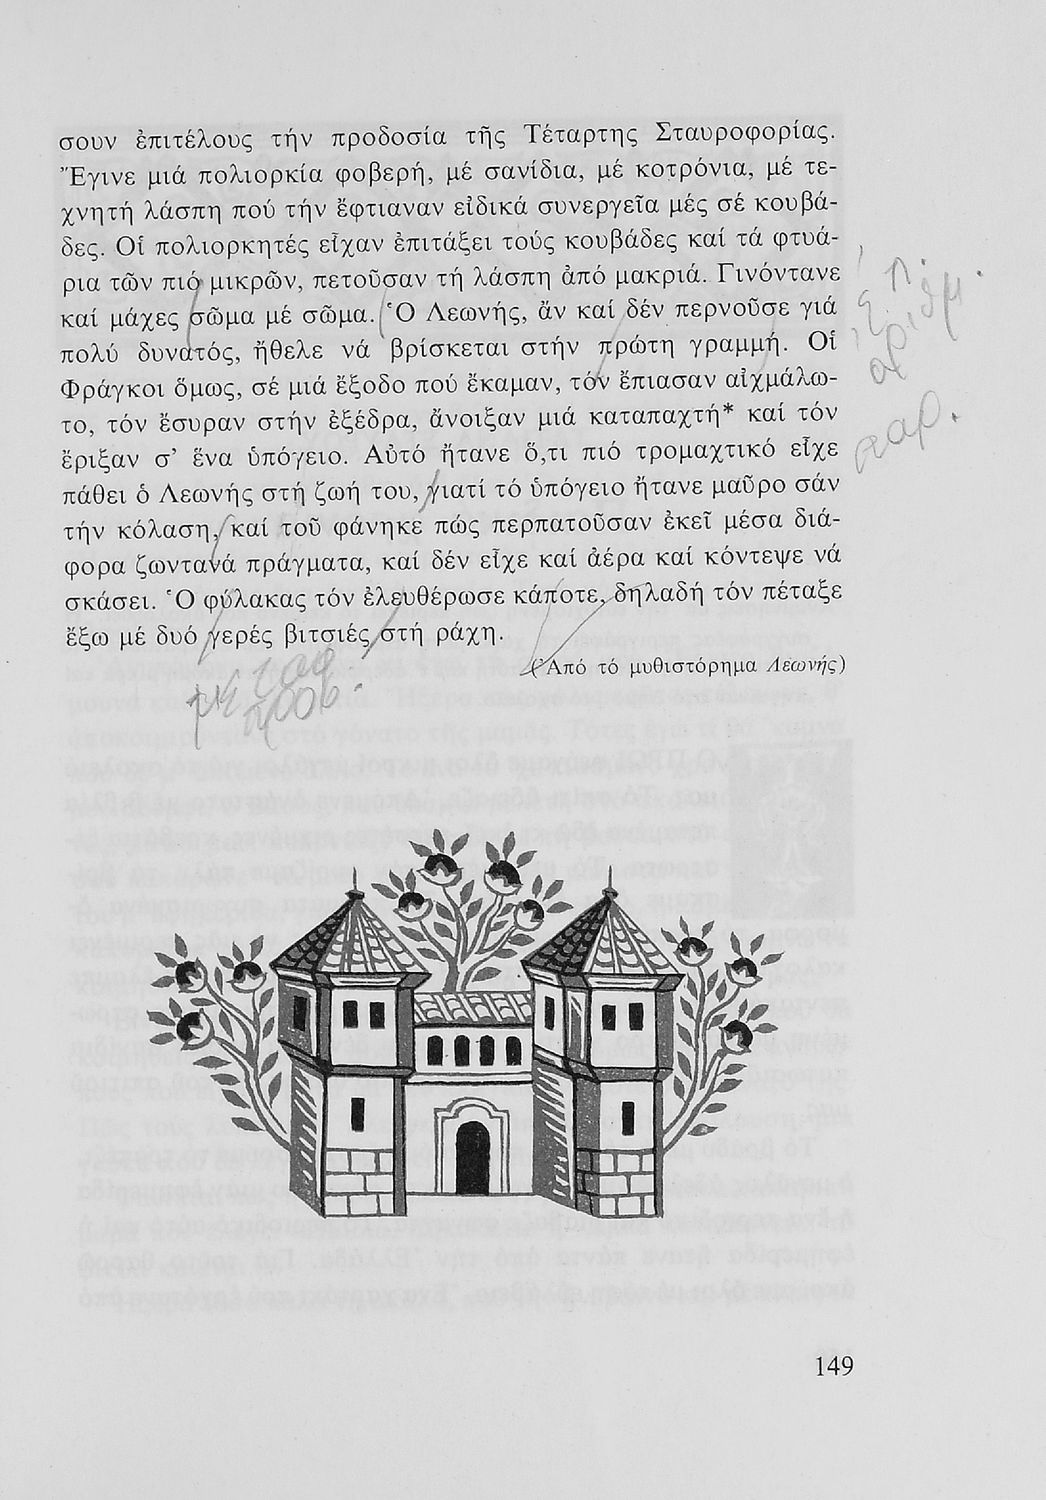 σουν ἐπιτέλους τήν προδοσία τῆς Τέταρτης Σταυροφορίας.
Ἔγινε μιά πολιορκία φοβερή, μέ σανίδια, μέ κοτρόνια, μέ τε-
χνητή λάσπη πού τήν ἔφτιαναν εἰδικά συνεργεῖα μές σέ κουβά-
δες. Οἱ πολιορκητές εἶχαν ἐπιτάξει τούς κουβάδες καί τά φτυά-
ρια τῶν πιό μικρῶν, πετοῦσαν τή λάσπη ἀπό μακριά. Γινόντανε
καί μάχες σῶμα μέ σῶμα. Ὁ Λεωνής, ἄν καί δέν περνοῦσε γιά
πολύ δυνατός, ἤθελε νά βρίσκεται στήν πρώτη γραμμή. Οἱ
Φράγκοι ὅμως, σέ μιά ἔξοδο πού ἔκαμαν, τόν ἔπιασαν αἰχμάλω-
το, τόν ἔσυραν στήν ἐξέδρα, ἄνοιξαν μιά καταπαχτή* καί τόν
ἔριξαν σ’ ἕνα ὑπόγειο. Αὐτό ἤτανε ὅ,τι πιό τρομαχτικό εἶχε
πάθει ὁ Λεωνής στή ζωή του, γιατί τό ὑπόγειο ἤτανε μαῦρο σάν
τήν κόλαση, καί τοῦ φάνηκε πώς περπατοῦσαν ἐκεῖ μέσα διά-
φορα ζωντανά πράγματα, καί δέν εἶχε καί ἀέρα καί κόντεψε νά
σκάσει. Ὁ φύλακας τόν ἐλευθέρωσε κάποτε, δηλαδή τόν πέταξε
ἔξω μέ δυό γερές βιτσιές στή ράχη.
(Ἀπό τό μυθιστόρημα Λεωνής)
149